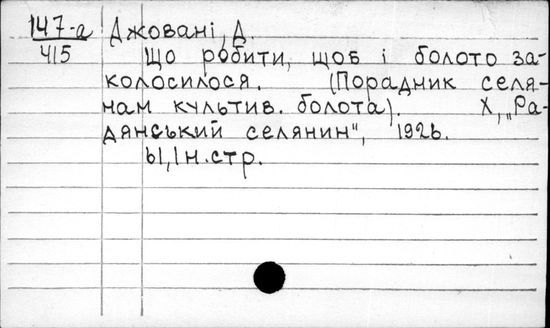 147-а Джовані, Д.
415 Що робити, щоб і болото за-
колосилося. (Порадник селя-
нам культив. болота). Х, „Ра-
дянський селянин", 1926.
61, 1 н. стр.